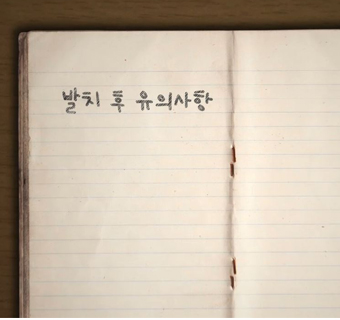 발치 후 유의사항